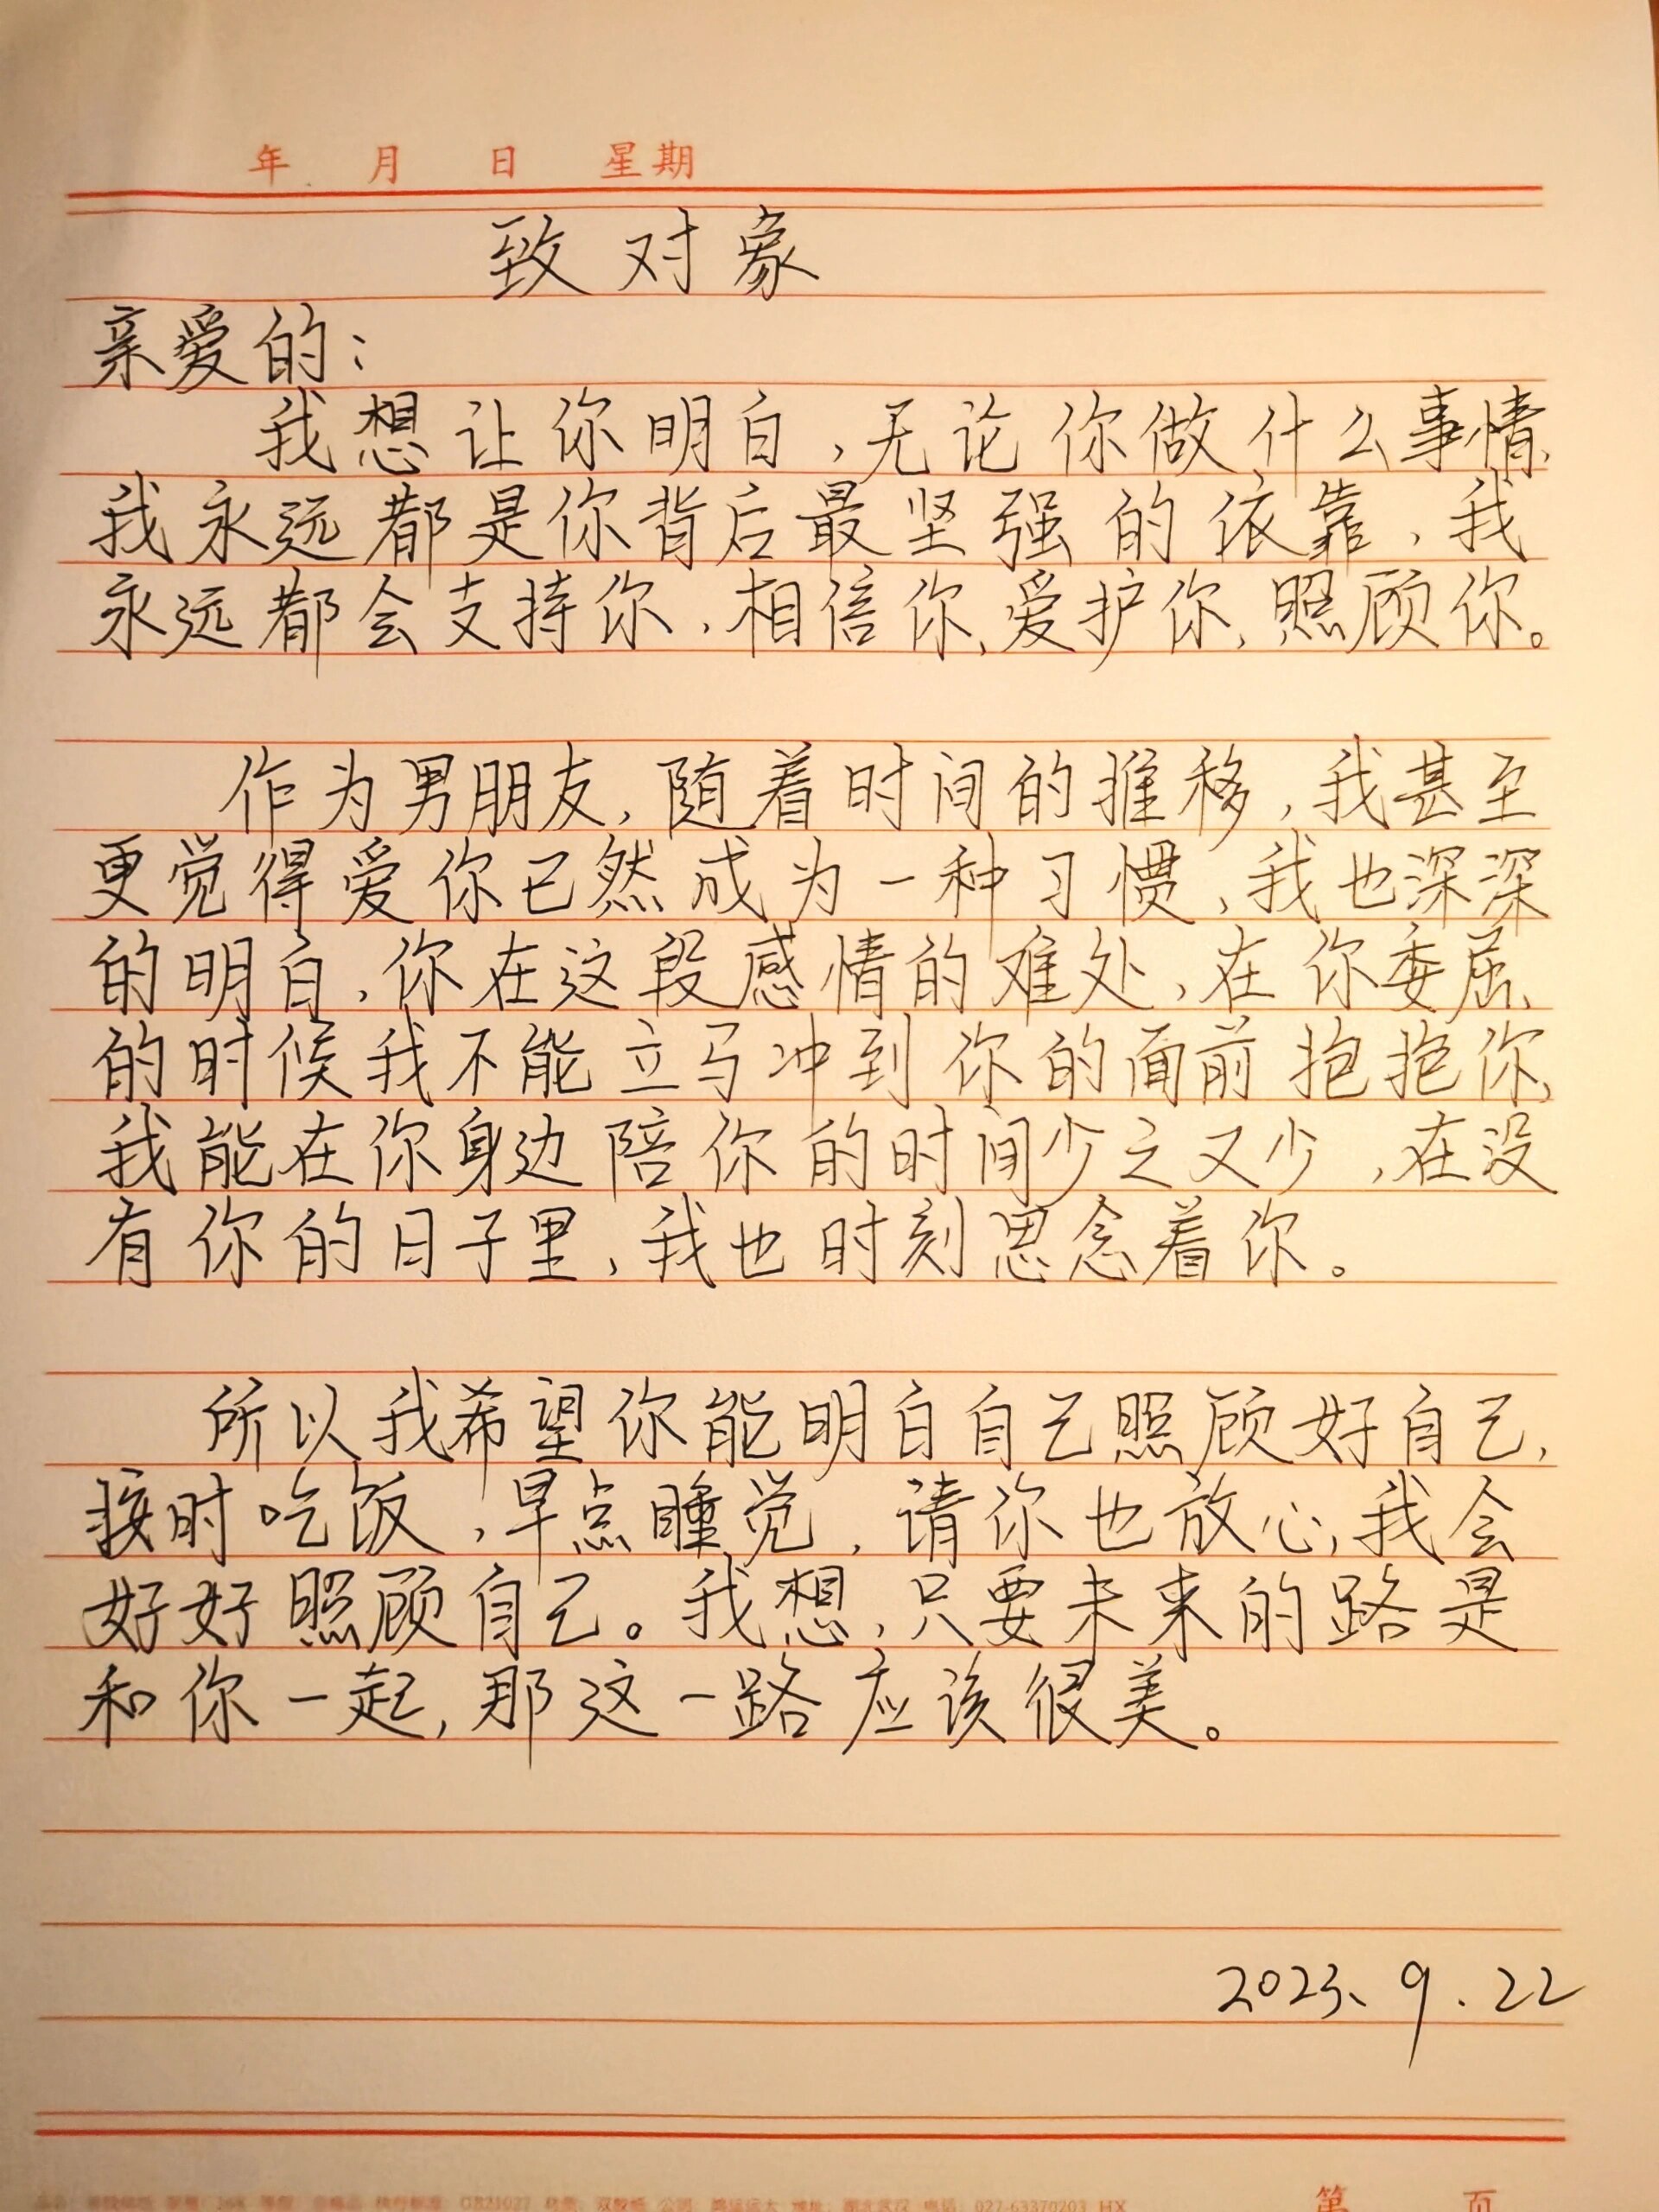 年 月 日 星期
致对象
亲爱的：
我想让你明白，无论你做什么事情，
我永远都是你背后最坚强的依靠，我
永远都会支持你，相信你，爱护你，照顾你。
作为男朋友，随着时间的推移，我甚至
更觉得爱你已然成为一种习惯，我也深深
的明白，你在这段感情的难处，在你委屈
的时候我不能立马冲到你的面前抱抱你，
我能在你身边陪你的时间少之又少，在没
有你的日子里，我也时刻思念着你。
所以我希望你能明白自己照顾好自己，
按时吃饭，早点睡觉，请你也放心，我会
好好照顾自己。我想，只要未来的路是
和你一起，那这一路应该很美。
2023.9.22
第 页